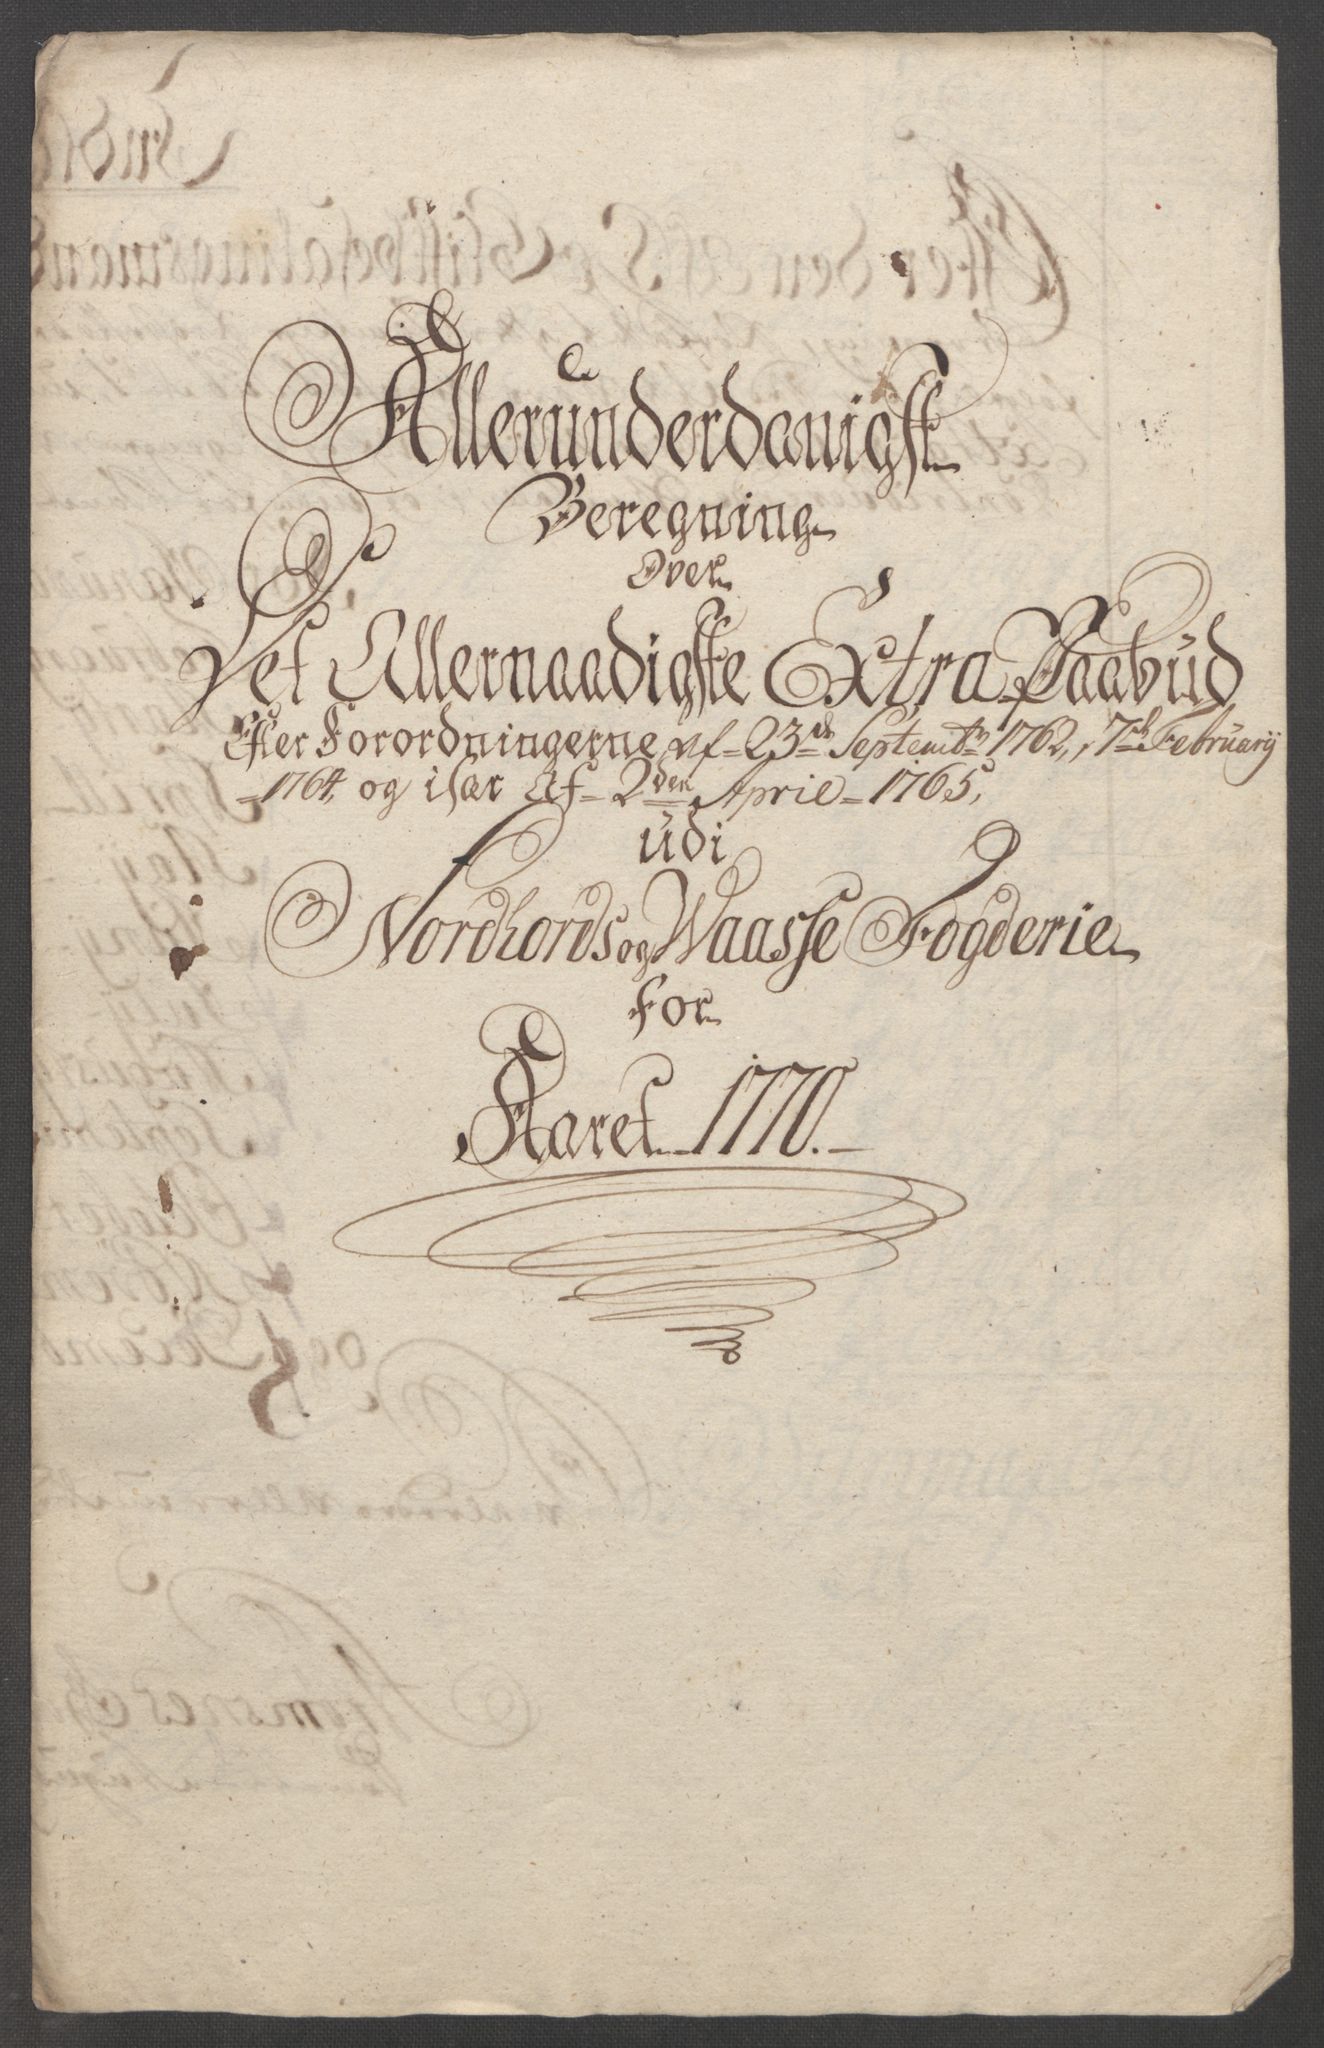 Allerunderdanigst
Beregning
Over
Det Allernaadigste Extra Paabud
Efter Forordningerne af 23de Septembr 1762, 7de Februarij
1764, og især Af 2den April 1765,
udi
Nordhords og Waasse Fogderie
for
Aaret 1770.